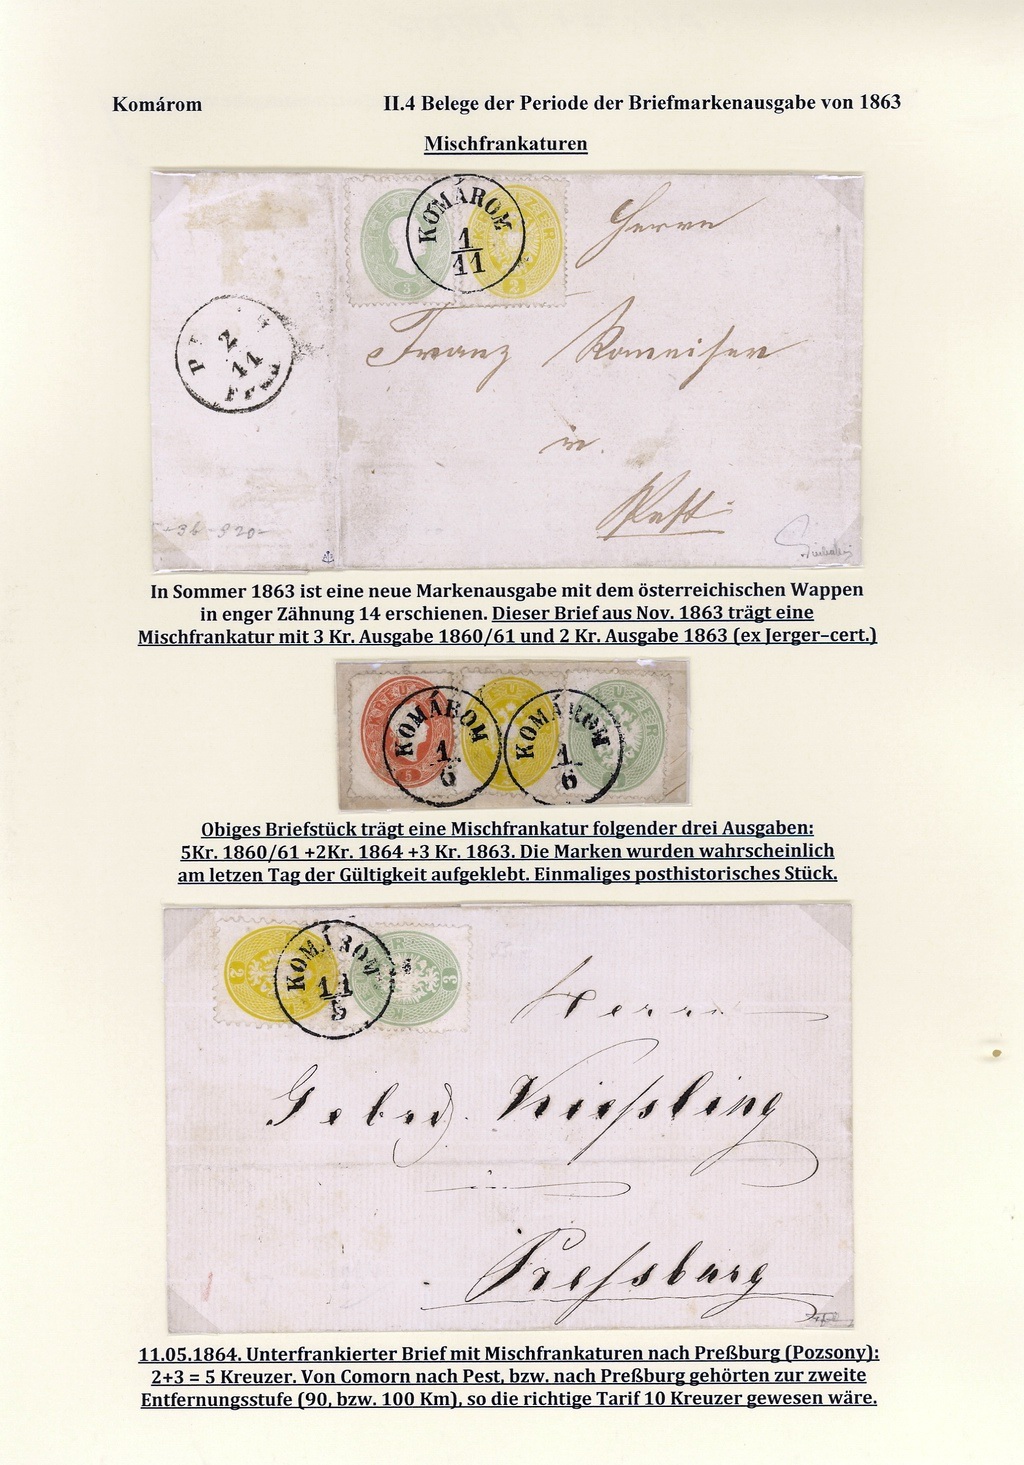 Komárom
II.4 Belege der Periode der Briefmarkenausgabe von 1863
Mischfrankaturen
KOMÁROM
1
11
3
2
Herrn
2
11
Franz
in
Pest
In Sommer 1863 ist eine neue Markenausgabe mit dem österreichischen Wappen
in enger Zähnung 14 erschienen. Dieser Brief aus Nov. 1863 trägt eine
Mischfrankatur mit 3 Kr. Ausgabe 1860/61 und 2 Kr. Ausgabe 1863 (ex Jerger–cert.)
KOMÁROM
1
6
KOMÁROM
1
6
5
Obiges Briefstück trägt eine Mischfrankatur folgender drei Ausgaben:
5Kr. 1860/61 +2Kr. 1864 +3 Kr. 1863. Die Marken wurden wahrscheinlich
am letzen Tag der Gültigkeit aufgeklebt. Einmaliges posthistorisches Stück.
2
KOMÁROM
11
5
3
Herrn
Gebrd. Kießling
in
Preßburg
11.05.1864. Unterfrankierter Brief mit Mischfrankaturen nach Preßburg (Pozsony):
2+3 = 5 Kreuzer. Von Comorn nach Pest, bzw. nach Preßburg gehörten zur zweite
Entfernungsstufe (90, bzw. 100 Km), so die richtige Tarif 10 Kreuzer gewesen wäre.